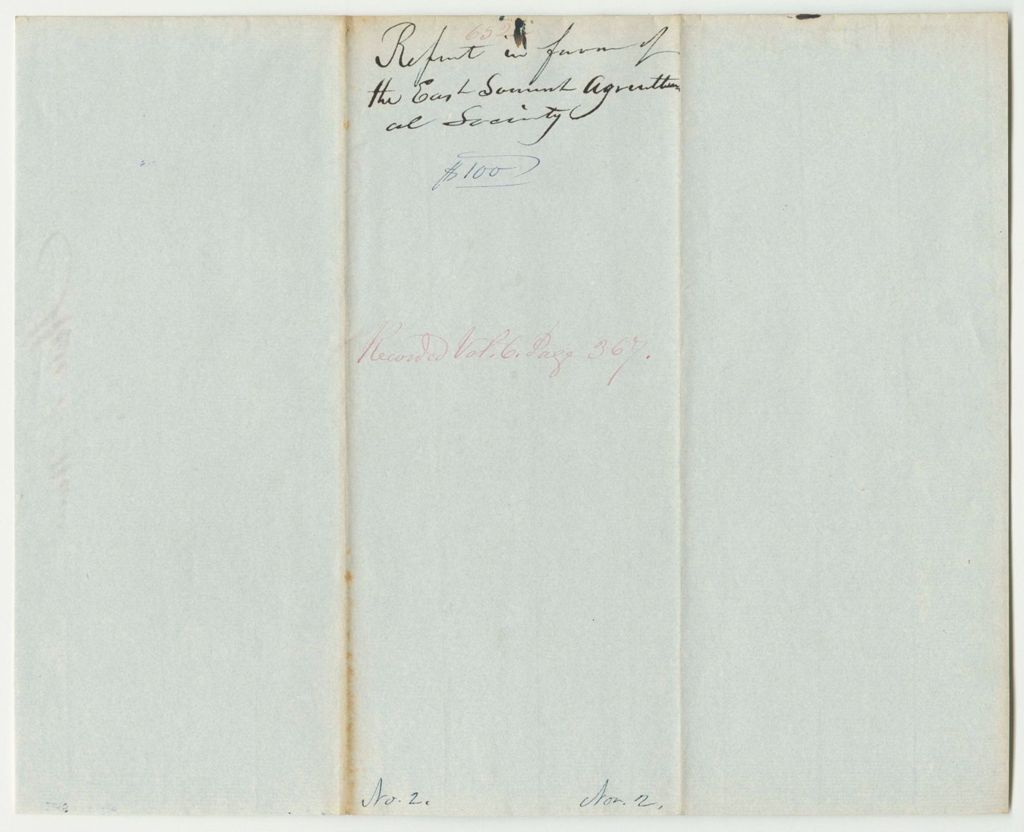 652
Report in favor of
the East Somerset Agricultur
al Society
$100
Recorded Vol. 6. Page 367.
No. 2.
Nov. 2,